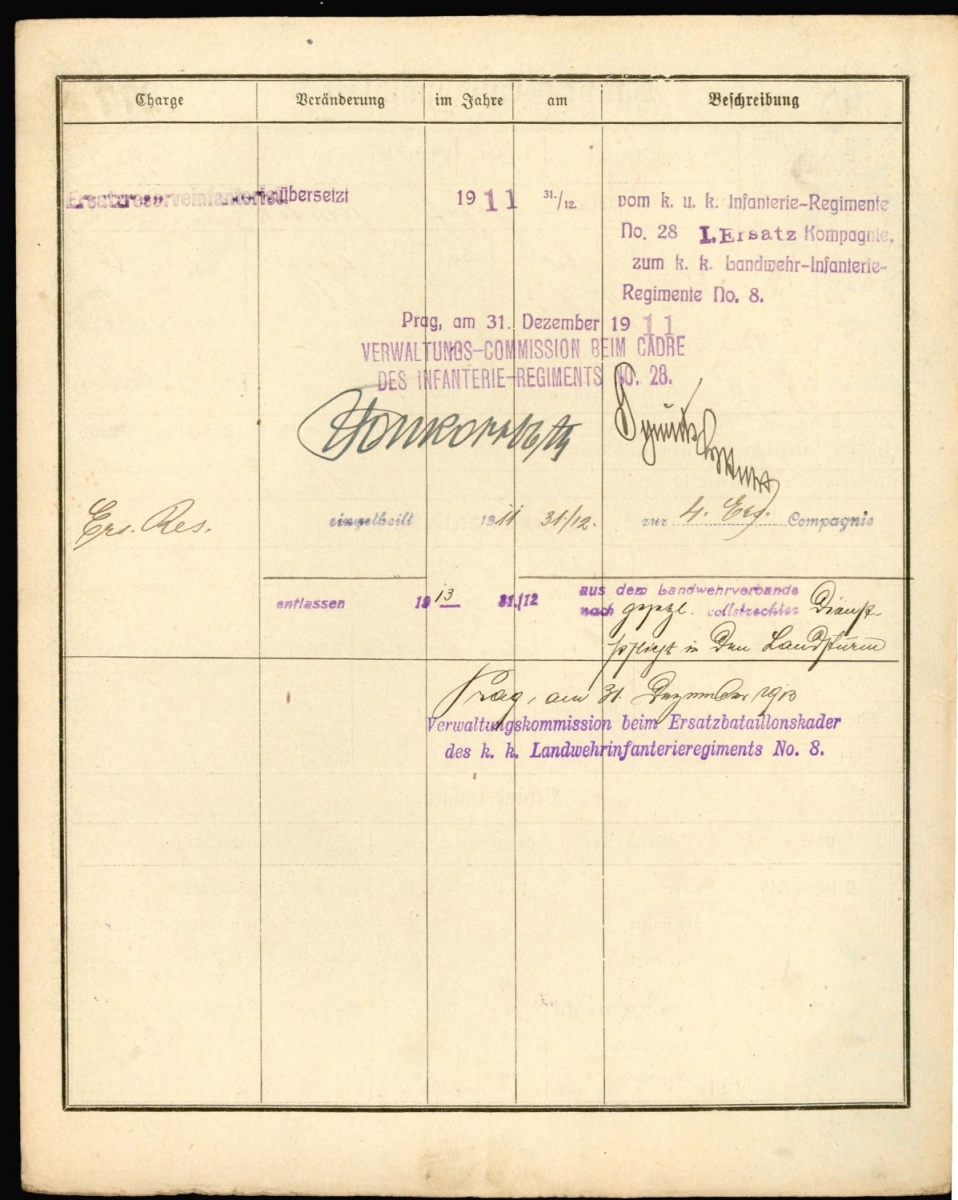 Charge Veränderung im Jahre am Beschreibung
übersetzt 1911 31./12. vom k. u. k. Infanterie-Regimente
No. 28 I. Ersatz Kompagnie,
zum k. k. Landwehr-Infanterie-
Regimente No. 8.
Prag, am 31. Dezember 1911
VERWALTUNGS-COMMISSION BEIM CADRE
DES INFANTERIE-REGIMENTS NO. 28.
Ers. Res. eingetheilt 1911 31/12. zur 4. Ers. Compagnie
entlassen 1913 31./12 aus dem Landwehrverbande
nach gesetzl. vollstreckter Dienst-
pflicht in den Landsturm
Prag, am 31. Dezember 1913
Verwaltungskommission beim Ersatzbataillonskader
des k. k. Landwehrinfanterieregiments No. 8.